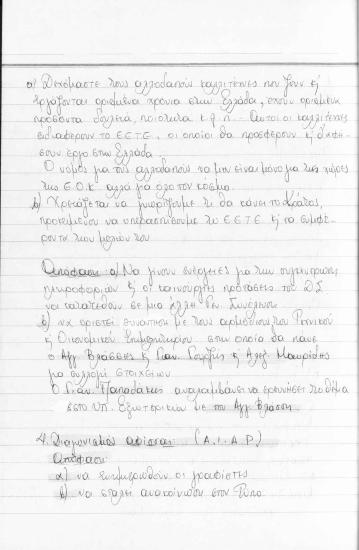 α) Δεχόμαστε τους αλλοδαπούς καλλιτέχνες που ζουν ή
εργάζονται ορισμένα χρόνια στην Ελλάδα, έχουν ορισμένα
προσόντα δουλειά, ποιότητα κ.λ.π. Αυτοί οι καλλιτέχνες
ενδιαφέρουν το Ε.Ε.Τ.Ε., οι οποίοι θα προσφέρουν ή
σουν έργο στην Ελλάδα.
Ο νόμος για τους αλλοδαπούς να μην είναι μόνο για της χώρες
της Ε.Ο.Κ αλλά για όλο τον κόσμο.
β) Χρειάζεται να γνωρίζουμε τι θα κάνει το Κράτος,
προκειμένου να υπερασπίσουμε το Ε.Ε.Τ.Ε ή τα συμφέ-
ροντα των μελών του
Απόφαση: α) Να γίνουν ενέργειες για την συγκέντρωση
πληροφοριών ή οι καινούργιες προτάσεις του Δ.Σ
να κατατεθούν σε μια άλλη Γεν. Συνέλευση
β) να οριστεί συνάντηση με τους αρμόδιους του Τεχνικού
ή Οικονομικού Επιμελητηρίου στην οποία θα πάνε
ο Αγγ. Βλάσσης ή Γιαν. Γουρζής ή Αλεξ. Μαυρίδης
για συλλογή στοιχείων
Ο Γιαν. Παπαδάκης αναλαμβάνει να ερευνήσει το θέμα
στο Υπ. Εξωτερικών με τη Αγγ. Βλάσση
4. Διαγωνισμός αφίσσας: (A.I.A.P.)
Απόφαση:
α) να ενημερωθούν οι γραφίστες
β) να σταλεί ανακοίνωση στον Τύπο